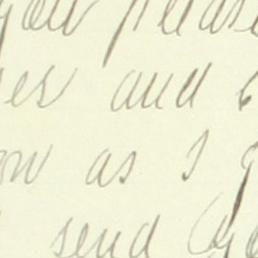 you please
es and
ow as I
send